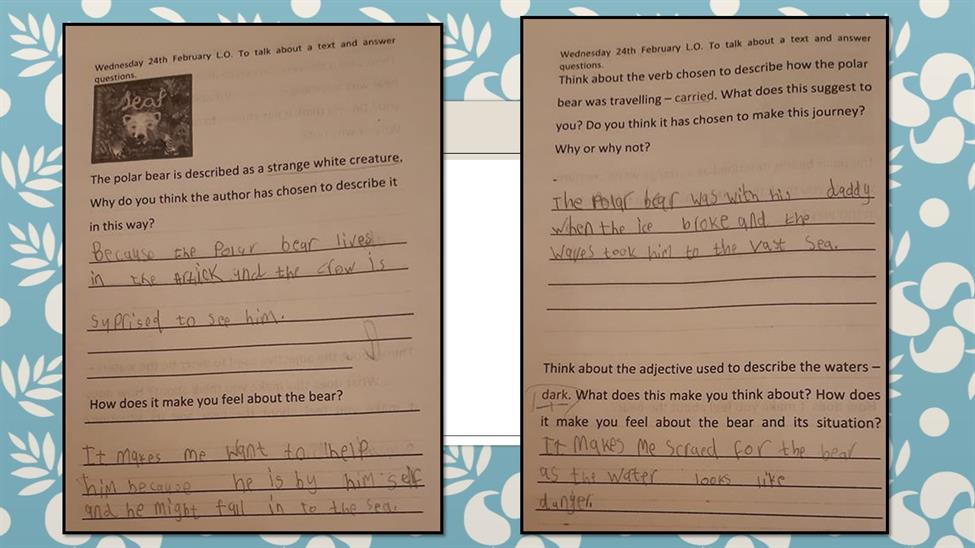 Wednesday 24th February L.O. To talk about a text and answer
questions.
Leaf
The polar bear is described as a strange white creature.
Why do you think the author has chosen to describe it
in this way?
Because the Polar bear lives
in the Artick and the crow is
syprised to see him.
How does it make you feel about the bear?
It makes me want to help
him because he is by him self
and he might fall in to the sea.
Wednesday 24th February L.O. To talk about a text and answer
questions.
Think about the verb chosen to describe how the polar
bear was travelling – carried. What does this suggest to
you? Do you think it has chosen to make this journey?
Why or why not?
The Polar bear was with his daddy
when the ice broke and the
waves took him to the vast sea.
Think about the adjective used to describe the waters –
dark. What does this make you think about? How does
it make you feel about the bear and its situation?
It makes me scraed for the bear
as the water looks like
danger.